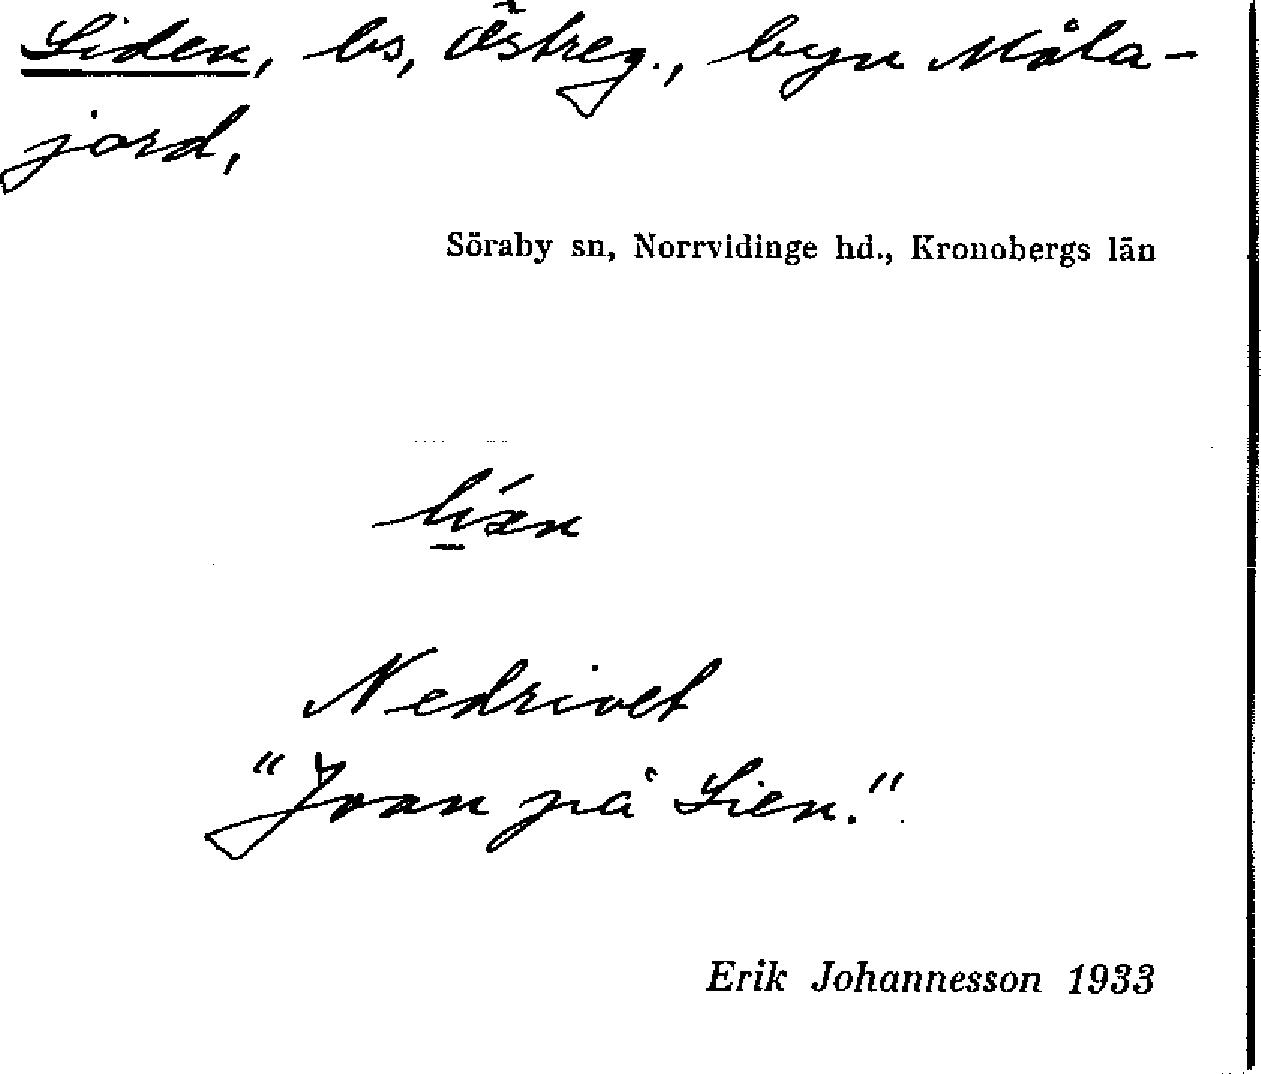 Liden, bs, Östreg., byn Måla-
jord,
Söraby sn, Norrvidinge hd., Kronobergs län
Nedrivet
"Joan på Lien."
Erik Johannesson 1933